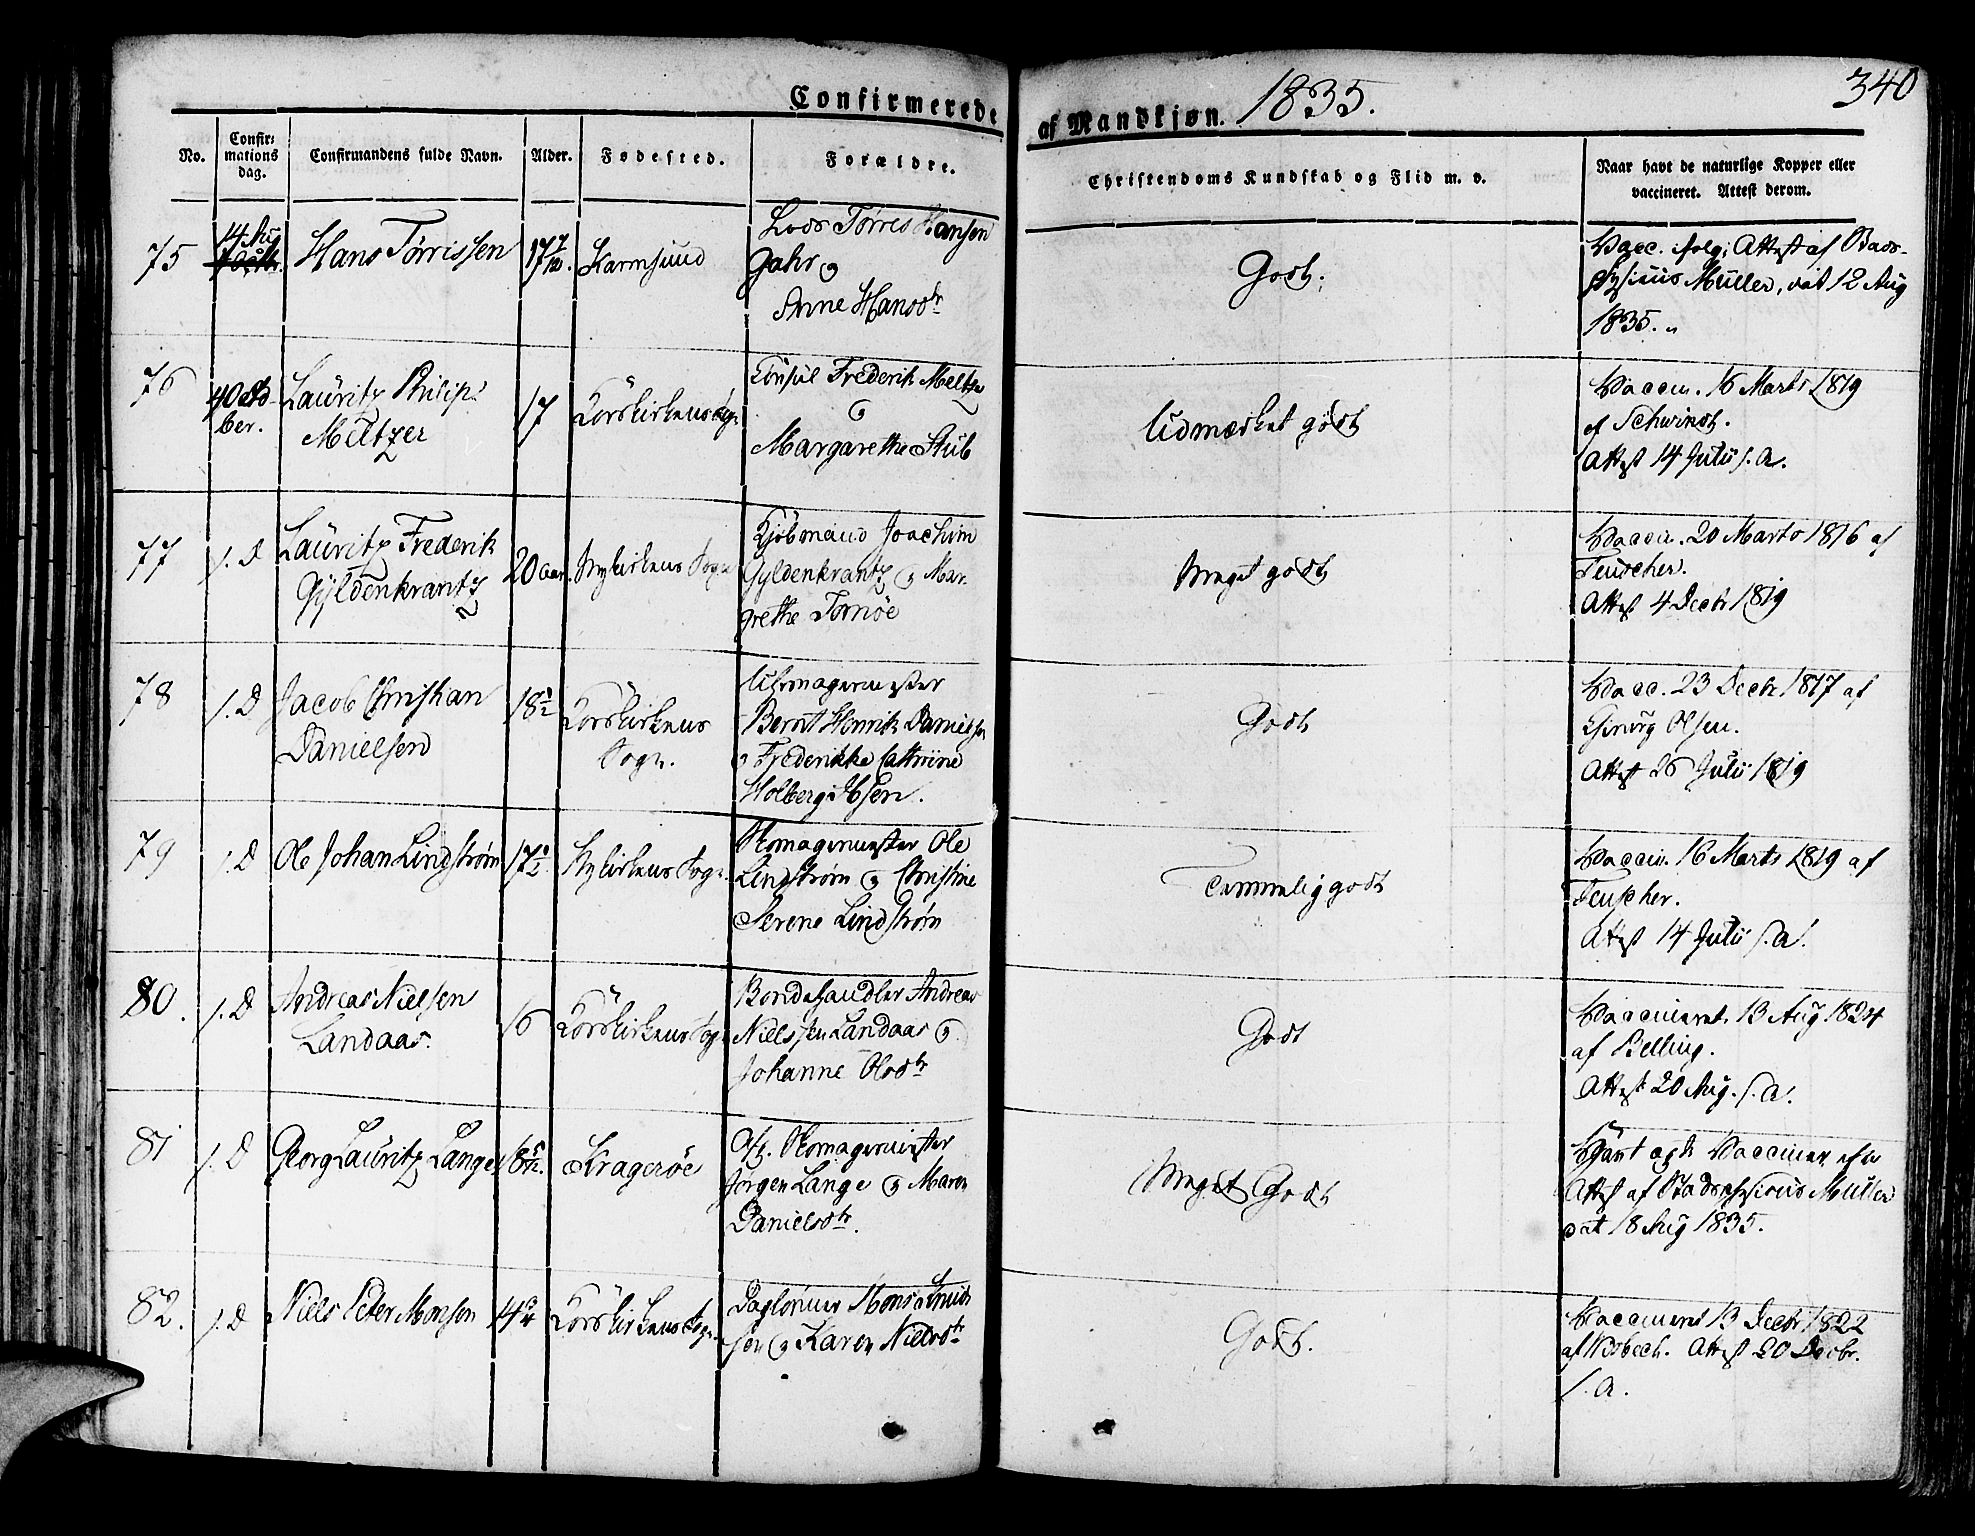 Confirmerede
af Mandkjøn. 1835.
340
No.
Confir=
mations
dag.
Confirmandens fulde Navn.
Alder.
Fødested.
Forældre.
Christendoms Kundskab og Flid m. v.
Naar havt de naturlige Kopper eller
vaccineret. Attest derom.
75
14 Aug
Hans Tørrissen
17 7/10.
Karmsund
Lods Tørres Hansen
Gahr og
Anne Hansdtr
Godt.
Vacc. ifølg; Attest af Stads-
physicus Müller, dat 12 Aug
1835.
76
4 Octo-
ber.
Lauritz Philip
Meltzer
17
Korskirkens Sogn
Consul Frederik Meltzer
og
Margarethe Stub
Udmærket godt
Vaccin. 16 Marts 1819
af Schwindt.
Attest 14 Julii s. a.
77
s. D
Lauritz Frederik
Gyldenkrantz
20 aar.
Nykirkens Sogn
Kjøbmand Joachim
Gyldenkrantz og Mar-
grethe Tornöe
Meget godt
Vaccin. 20 Marts 1816 af
Teuscher.
Attest 4 Decbr 1819
78
s. D
Jacob Christian
Danielsen
18 1/2
Korskirkens
Sogn.
Uhrmagermester
Bernt Henrik Danielsen
og Frederikke Cathrine
Holberg Ibsen.
Godt
Vacc. 23 Decbr 1817 af
Olsen.
Attest 26 Julii 1819
79
s. D
Ole Johan Lindstrøm
17 1/2
Nykirkens Sogn.
Skomagermester Ole
Lindstrøm og Christine
Serene Lindstrøm
Temmelig godt
Vaccin. 16 Marts 1819 af
Teuscher.
Attest 14 Julii s. a.
80.
s. D
Andreas Nielsen
Landaas.
16
Korskirkens Sogn
Bondehandler Andreas
Nielssen Landaas og
Johanne Olsdtr
Godt
Vaccineret 13 Aug. 1824
af Belling.
Attest 20 Aug. s. a.
81
s. D
Georg Lauritz Lange
Kragerøe
Afg. Skomagermester
Jørgen Lange og Maren
Danielsdtr.
Meget Godt
Vaccineret
Attest af Stadsphysicus Müller
dat 18 Aug 1835.
82.
s. D
Niels Peter Monsen
14 3/4
Korskirkens Sogn
Daglønner Mons Knud-
sen og Karen Nielsdtr
Godt.
Vaccineret 13 Decbr 1822
af Wisbech. Attest 20 Decbr.
s. a.